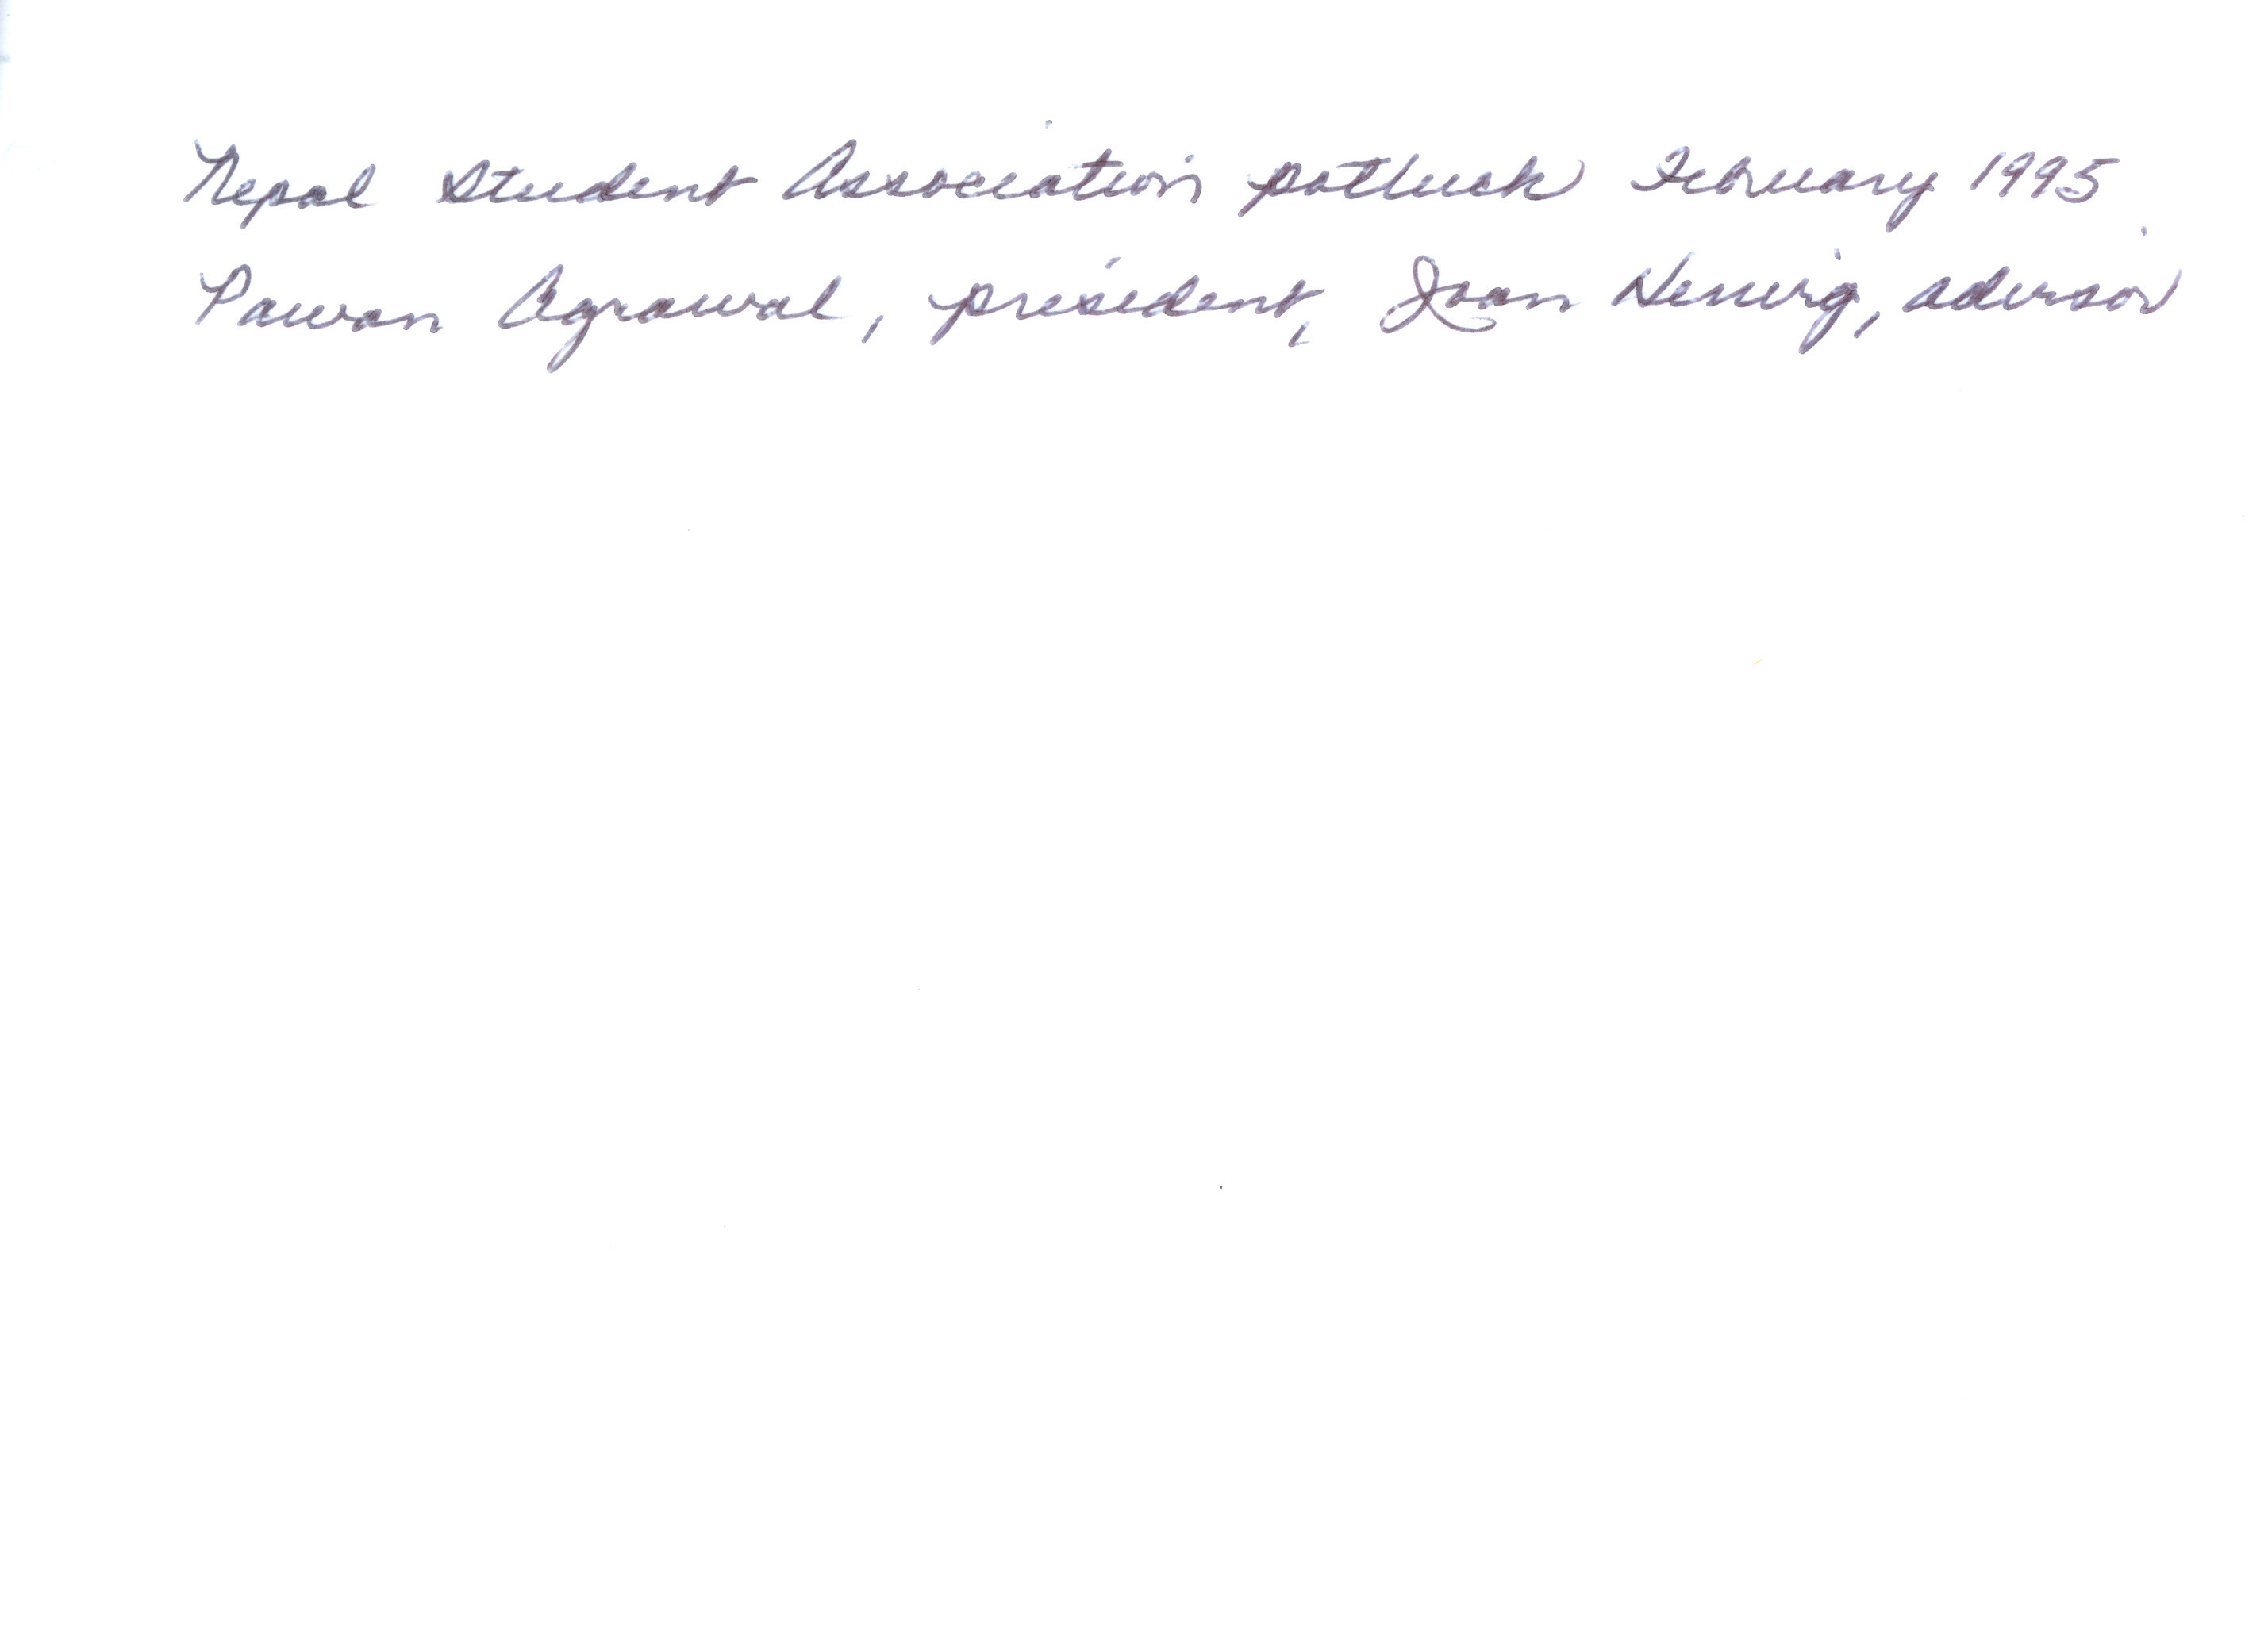 Nepal Student Association potluck February 1995
Pawan Agrawal, president, Joan Nerwig, advisor